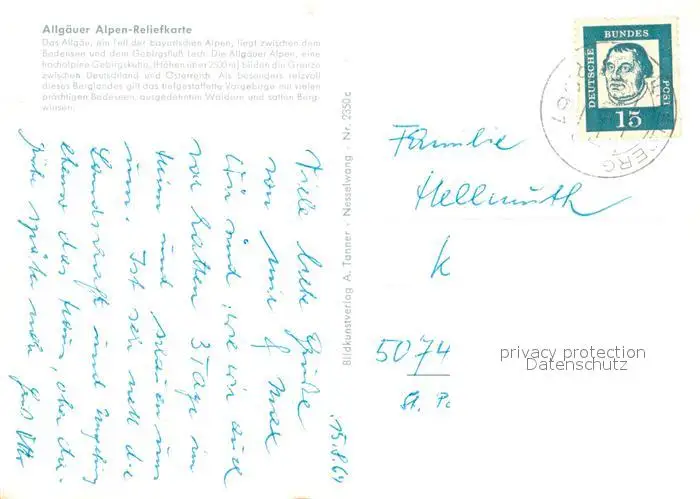 Allgäuer Alpen-Reliefkarte
Das Allgäu, ein Teil der bayerischen Alpen, liegt zwischen dem
Bodensee und dem Gebirgsfluß Lech. Die Allgäuer Alpen, eine
hochalpine Gebirgskette, (Höhen über 2500 m) bilden die Grenze
zwischen Deutschland und Österreich. Als besonders reizvoll
dieses Berglandes gilt das tiefgestaffelte Vorgebirge mit vielen
prächtigen Badeseen, ausgedehnten Wäldern und satten Berg-
wiesen.
Viele liebe Grüße
von mir
Wir sind, wie wir auch
vor hatten 3 Tage im
Heim und schauen uns
um. Ist sehr nett die
Landschaft und Umgebung
ebenso das Haus, aber
später mehr
15.8.64
Bildkunstverlag A. Tanner · Nesselwang · Nr. 2350 c
DEUTSCHE BUNDES POST
15
BERG
Familie
Hellmuth
K
5074
St. Pe
privacy protection
Datenschutz